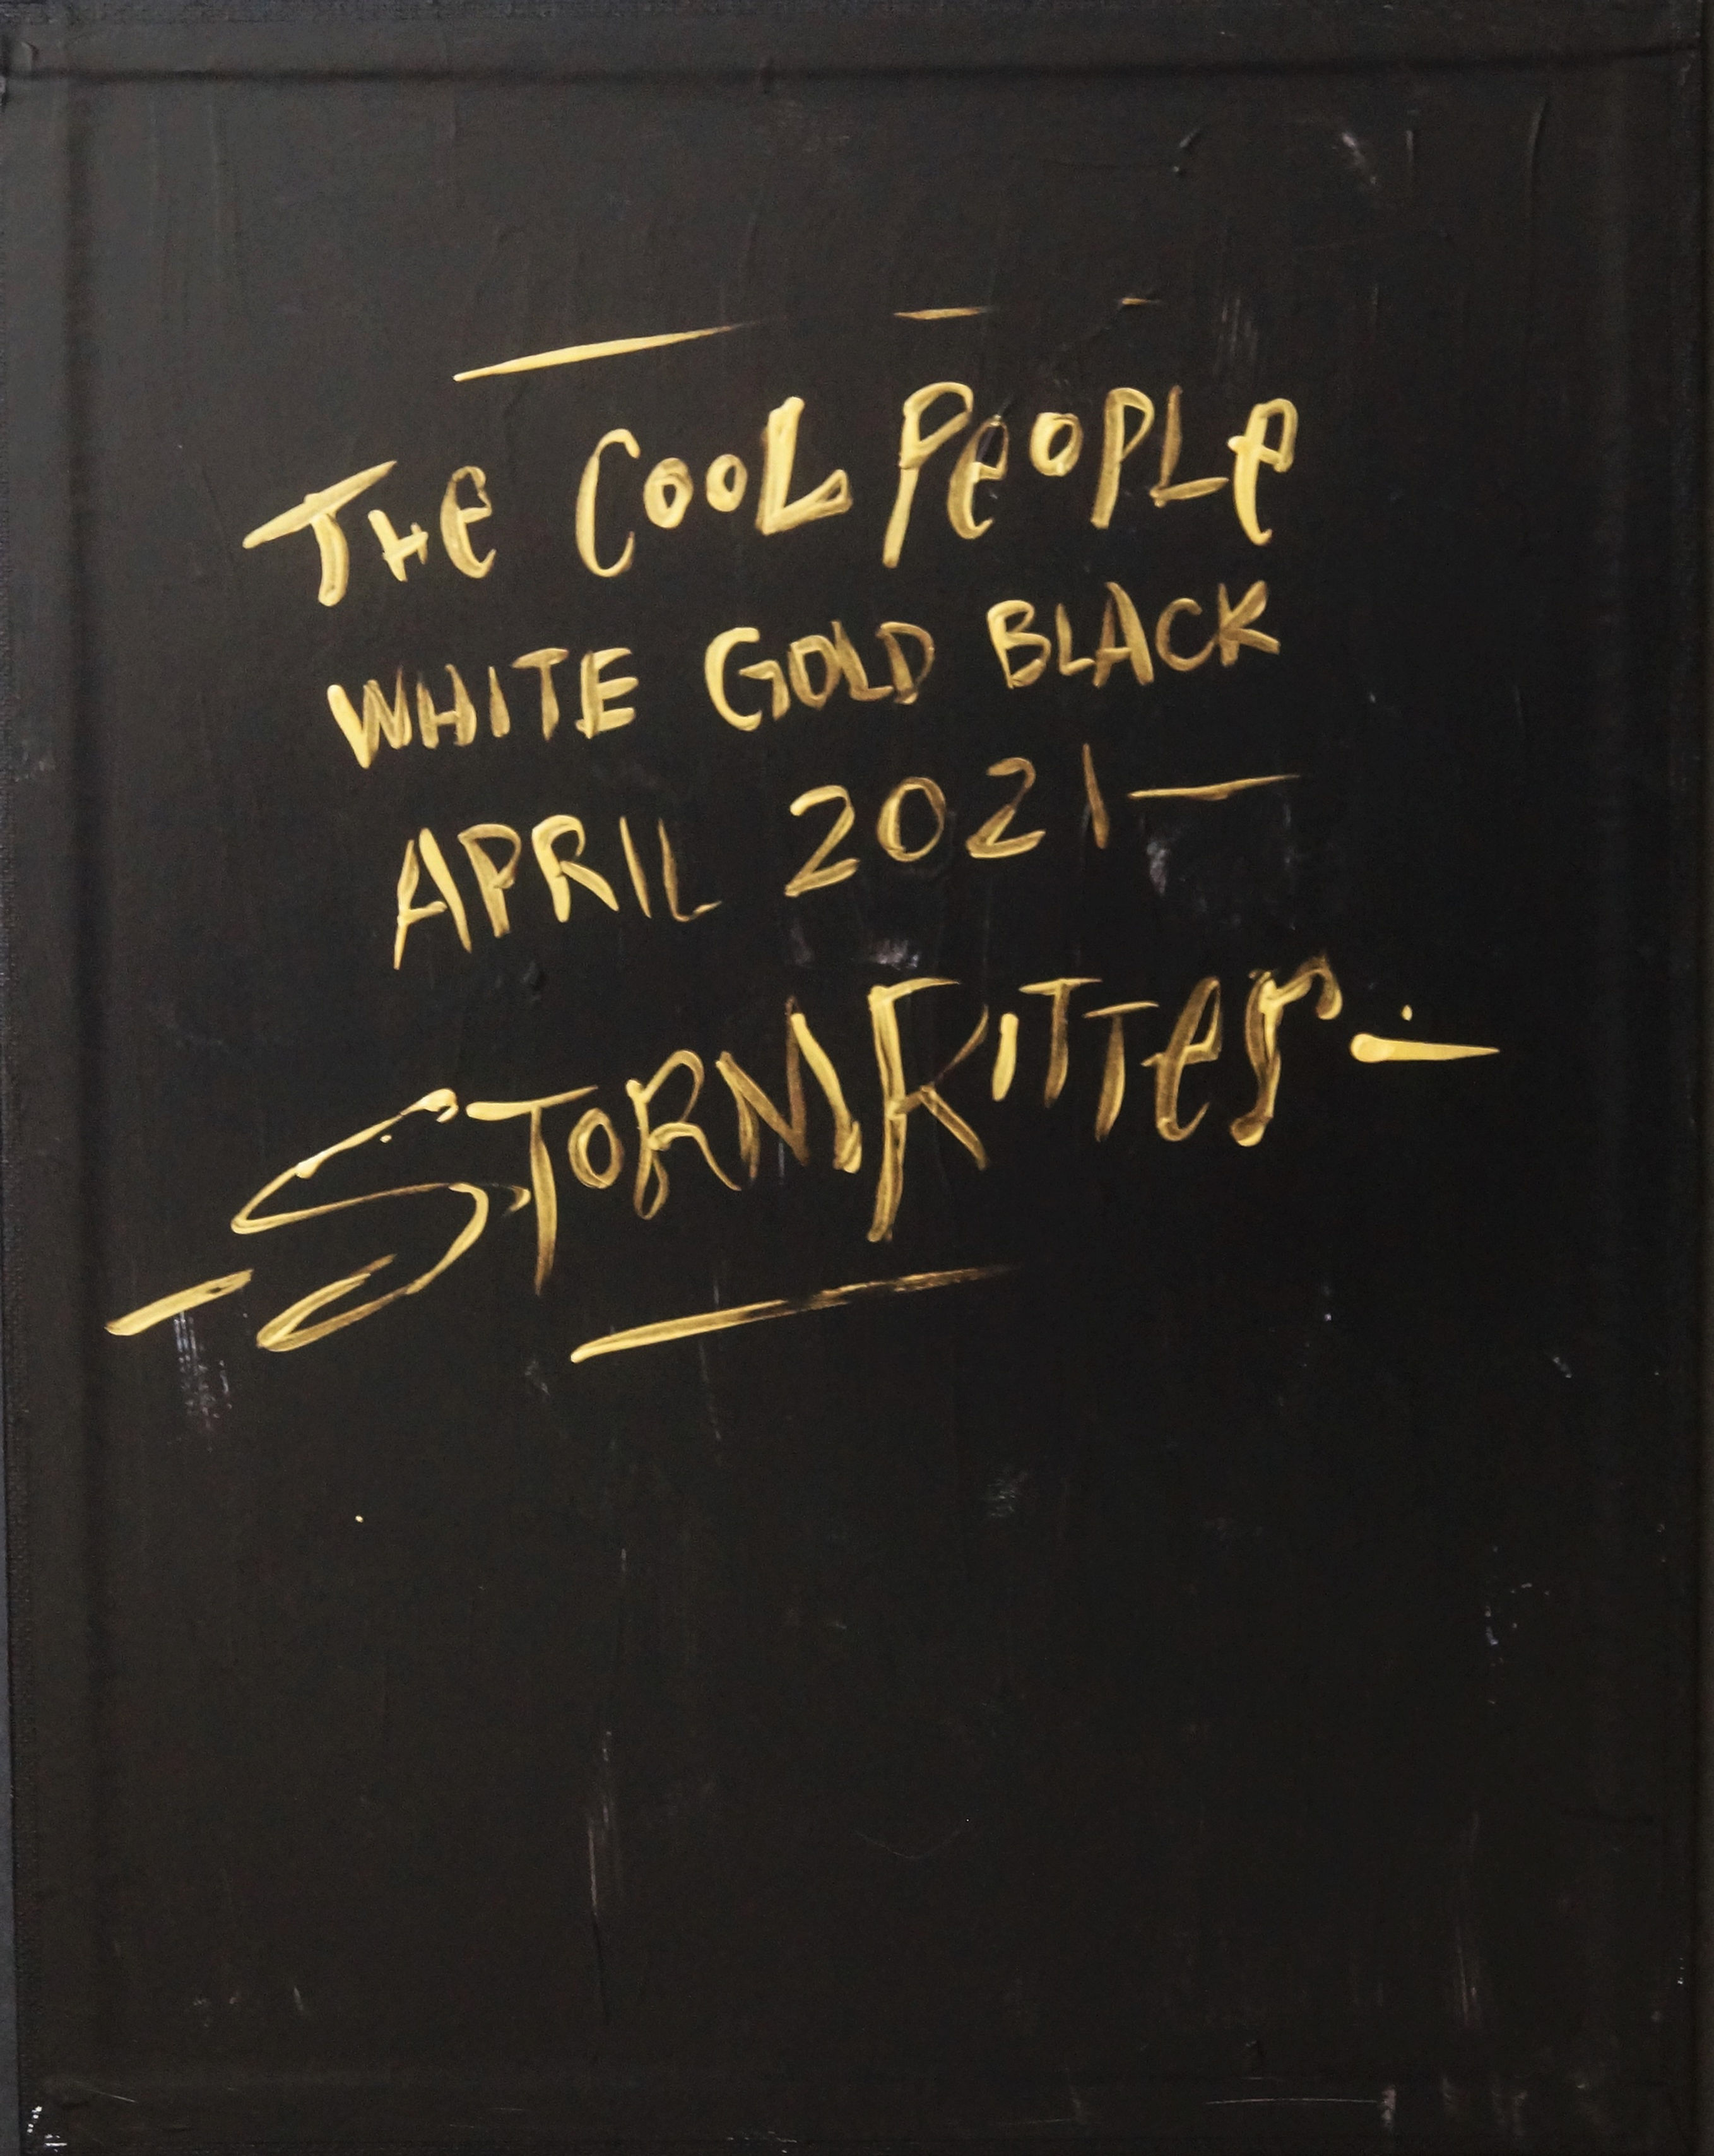 THe COOL PeOPLe
WHITE GOLD BLACK
APRIL 2021—
STORM RITTer